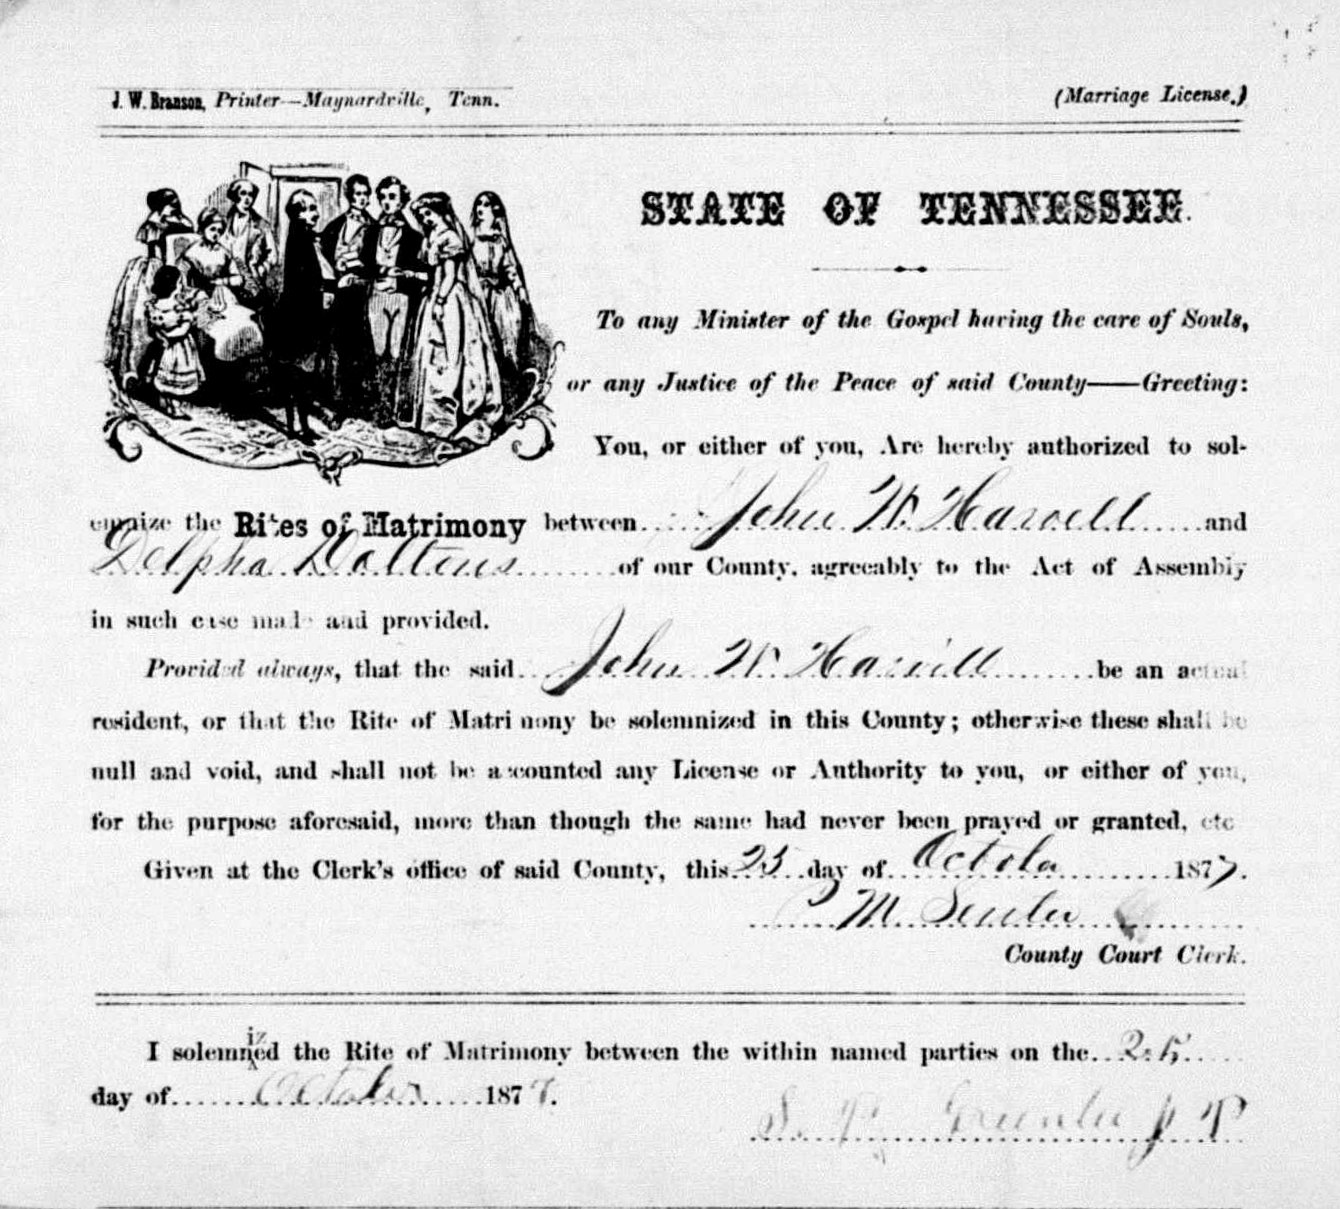 J. W. Branson, Printer—Maynardville, Tenn. (Marriage License.)
STATE OF TENNESSEE.
To any Minister of the Gospel having the care of Souls,
or any Justice of the Peace of said County——Greeting:
You, or either of you, Are hereby authorized to sol-
emnize the Rites of Matrimony between John W. Harvell and
Delpha Daltens of our County, agreeably to the Act of Assembly
in such case made and provided.
Provided always, that the said John W. Harvill be an actual
resident, or that the Rite of Matrimony be solemnized in this County; otherwise these shall be
null and void, and shall not be accounted any License or Authority to you, or either of you,
for the purpose aforesaid, more than though the same had never been prayed or granted, etc
Given at the Clerk's office of said County, this 25 day of Octobr 1877.
M Senter
County Court Clerk.
I solemnized the Rite of Matrimony between the within named parties on the 25
day of October 1877.
S. P. J P